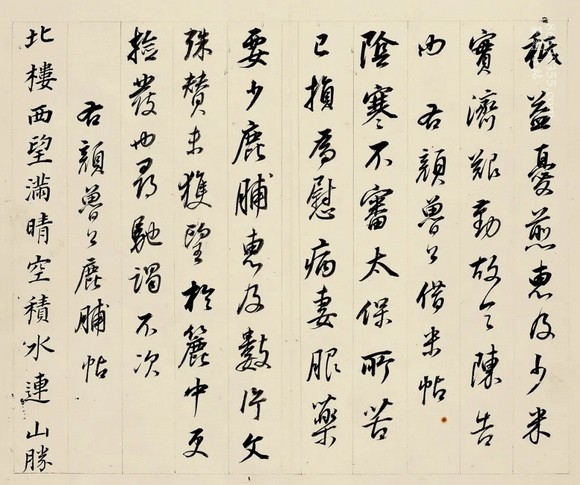 秖益憂煎惠及少米
實濟艱勤故令陳告
也右顏魯公借米帖
陰寒不審太保所苦
已損為慰病妻服藥
要少鹿脯惠及數片父
殊贊未獲望於簏中更
撿發也尋馳謁不次
右顏魯公鹿脯帖
北樓西望滿晴空積水連山勝